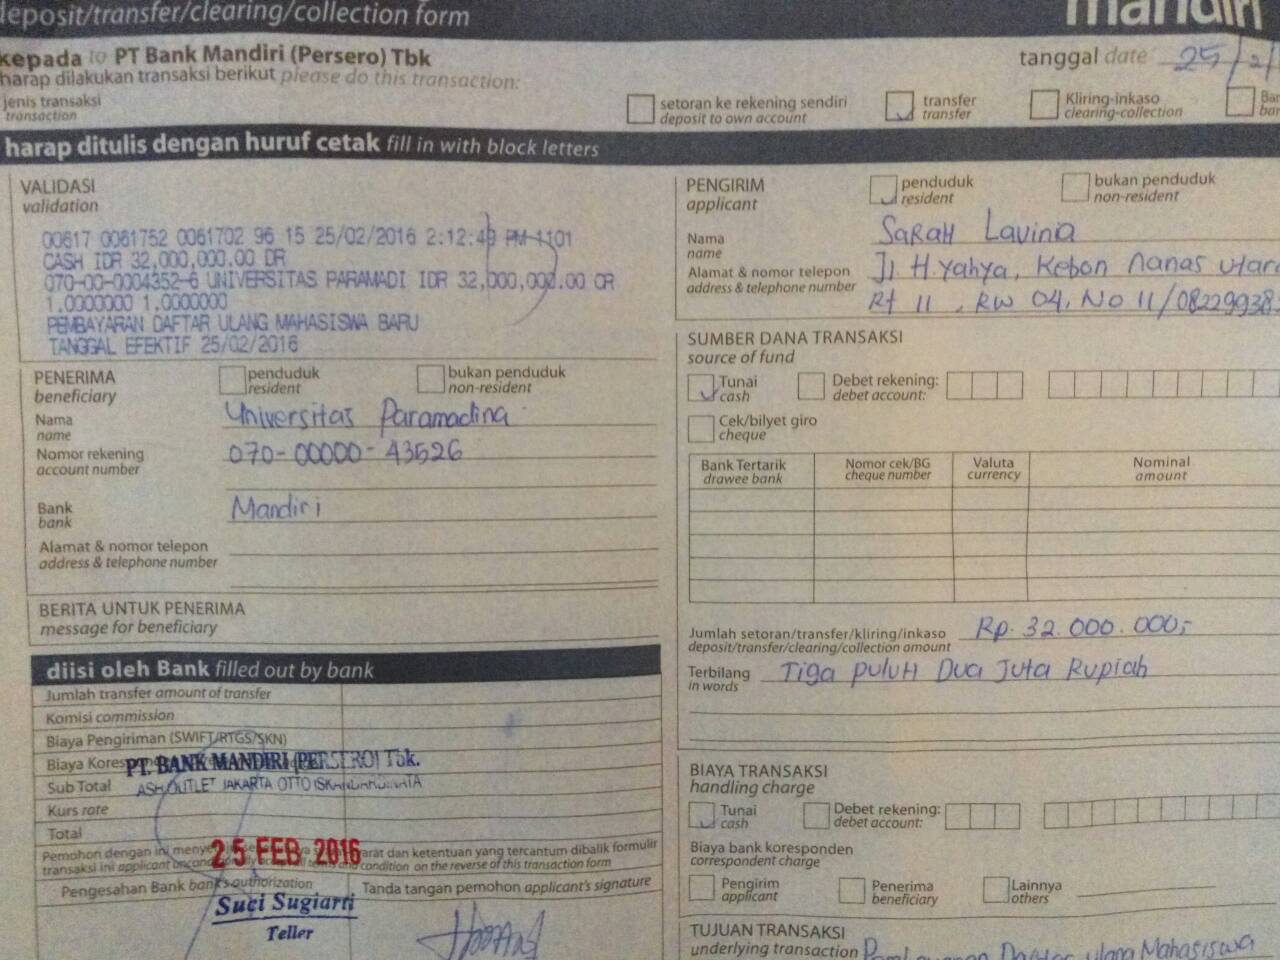 deposit/transfer/clearing/collection form
mandiri
kepada to PT Bank Mandiri (Persero) Tbk
harap dilakukan transaksi berikut please do this transaction:
tanggal date 25/2/
jenis transaksi
transaction
setoran ke rekening sendiri
deposit to own account
transfer
transfer
Kliring-inkaso
clearing-collection
harap ditulis dengan huruf cetak fill in with block letters
VALIDASI
validation
00617 0061752 0061702 96 15 25/02/2016 2:12:49 PM 1101
CASH IDR 32,000,000.00 DR
070-00-0004352-6 UNIVERSITAS PARAMADI IDR 32,000,000.00 CR
1.0000000 1.0000000
PEMBAYARAN DAFTAR ULANG MAHASISWA BARU
TANGGAL EFEKTIF 25/02/2016
PENERIMA
beneficiary
penduduk
resident
bukan penduduk
non-resident
Nama
name
Universitas Paramadina
Nomor rekening
account number
070-00000-43526
Bank
bank
Mandiri
Alamat & nomor telepon
address & telephone number
BERITA UNTUK PENERIMA
message for beneficiary
diisi oleh Bank filled out by bank
Jumlah transfer amount of transfer
Komisi commission
Biaya Pengiriman (SWIFT/RTGS/SKN)
Biaya
PT. BANK MANDIRI (PERSERO) Tbk.
Sub Total
JAKARTA OTTO ISKANDARDINATA
Kurs rate
Total
25 FEB 2016
Pemohon dengan ini dan ketentuan yang tercantum dibalik formulir
transaksi ini applicant condition on the reverse of this transaction form
Pengesahan Bank bank's authorization
Tanda tangan pemohon applicant's signature
Suci Sugiarti
Teller
PENGIRIM
applicant
penduduk
resident
bukan penduduk
non-resident
Nama
name
Sarah Lavinia
Alamat & nomor telepon
address & telephone number
Jl. H. Yahya, Kebon Nanas Utara
Rt 11, RW 04, No 11/082299383
SUMBER DANA TRANSAKSI
source of fund
Tunai
cash
Debet rekening:
debet account:
Cek/bilyet giro
cheque
Bank Tertarik
drawee bank
Nomor cek/BG
cheque number
Valuta
currency
Nominal
amount
Jumlah setoran/transfer/kliring/inkaso
deposit/transfer/clearing/collection amount
Rp. 32.000.000,-
Terbilang
in words
Tiga puluh Dua Juta Rupiah
BIAYA TRANSAKSI
handling charge
Tunai
cash
Debet rekening:
debet account:
Biaya bank koresponden
correspondent charge
Pengirim
applicant
Penerima
beneficiary
Lainnya
others
TUJUAN TRANSAKSI
underlying transaction
Pembayaran Daftar ulang Mahasiswa